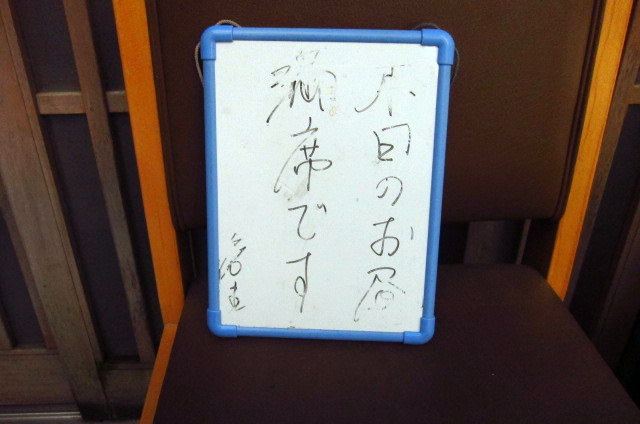 本日のお昼
満席です